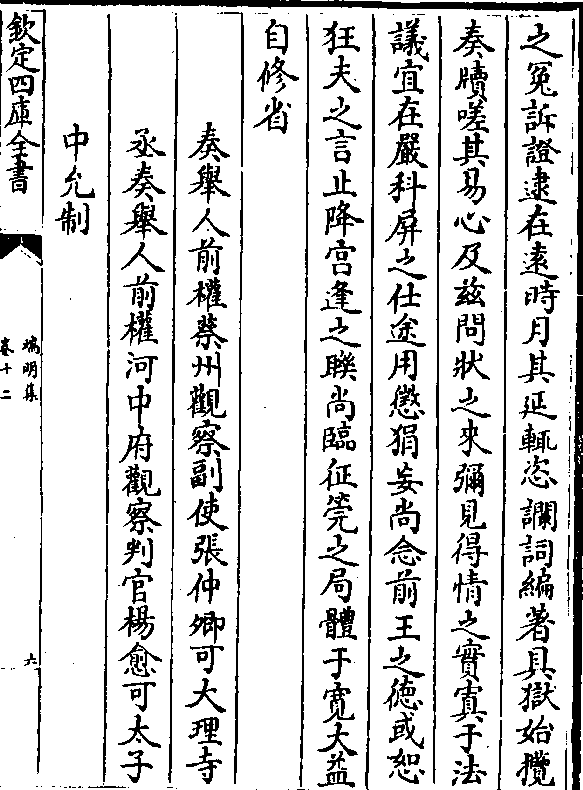 之冤訴證逮在逺時月其延輒恣讕詞編著具獄始攬
奏牘嗟其易心及兹問狀之來彌見得情之實寘于法
議宜在嚴科屏之仕途用懲狷妄尚念前王之徳或恕
狂夫之言止降宫逢之聮尚臨征筦之局體于寛大益
自修省
奏舉人前權蔡州觀察副使張仲卿可大理寺
丞奏舉人前權河中府觀察判官楊愈可太子
中允制
欽定四庫全書
端明集
卷十二
六